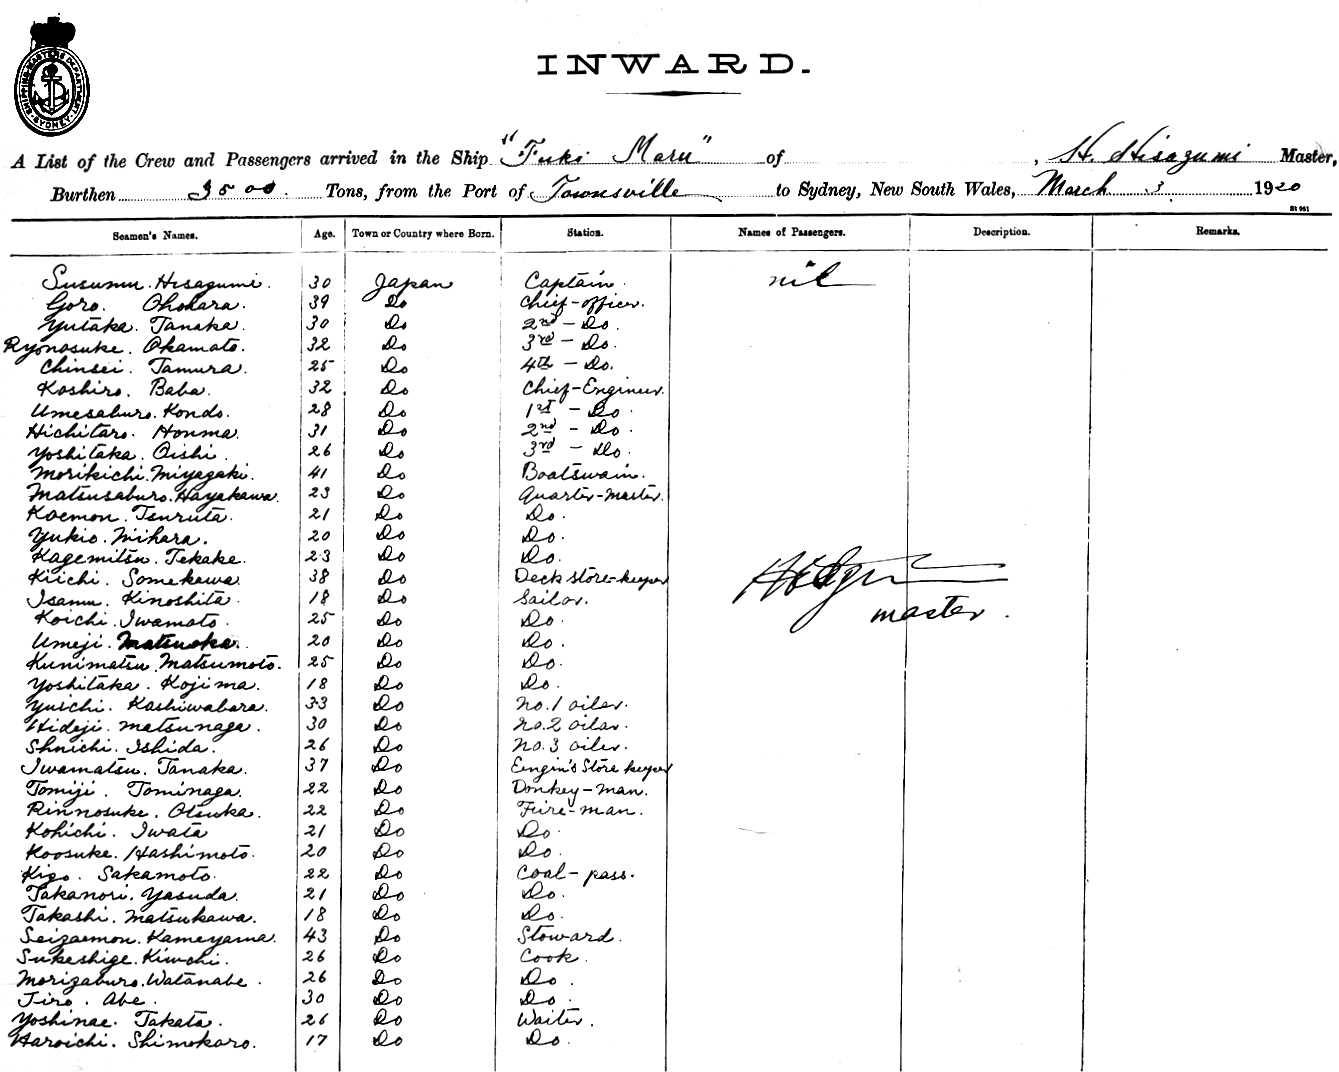 SHIPPING MASTERS DEPARTMENT SYDNEY
INWARD.
A List of the Crew and Passengers arrived in the Ship "Fuki Maru" of , H. Hisagumi Master,
Burthen 3500. Tons, from the Port of Townsville to Sydney, New South Wales, March 3 1920
St 961
Seamen's Names. Age. Town or Country where Born. Station. Names of Passengers. Description. Remarks.
Susumu. Hisagumi. 30 Japan Captain. nil
Goro. Ohohara. 39 Do Chief-officer.
Yutaka. Tanaka. 30 Do 2nd - Do.
Ryonosuke. Okamoto. 32 Do 3rd - Do.
Chinsei. Tamura. 25 Do 4th - Do.
Koshiro. Baba. 32 Do Chief-Engineer.
Umesaburo. Kondo. 28 Do 1st - Do.
Hichitaro. Honma. 31 Do 2nd - Do.
Yoshitaka. Oishi. 26 Do 3rd - Do.
Morikichi. Miyagaki. 41 Do Boatswain.
Matsusaburo. Hayakawa. 23 Do Quarter-master.
Koemon. Tsuruta. 21 Do Do.
Yukio. Mihara. 20 Do Do.
Kagemitsu. Tekake. 23 Do Do.
Kiichi. Somekawa. 38 Do Deck store-keeper
Isamu. Kinoshita. 18 Do Sailor.
master.
Koichi. Iwamoto. 25 Do Do.
Umeji. Matsuoka. 20 Do Do.
Kunimatsu. Matsumoto. 25 Do Do.
Yoshitaka. Kojima. 18 Do Do.
Yuichi. Kashiwabara. 33 Do No.1 oiler.
Hideji. Matsunaga. 30 Do No.2 oiler.
Shuichi. Ishida. 26 Do No.3 oiler.
Iwamatsu. Tanaka. 37 Do Engin's Store keeper
Tomiji. Tominaga. 22 Do Donkey-man.
Rinnosuke. Otsuka. 22 Do Fire-man.
Kohichi. Iwata 21 Do Do.
Koosuke. Hashimoto. 20 Do Do.
Kigo. Sakamoto. 22 Do Coal-pass.
Takanori. Yasuda. 21 Do Do.
Takashi. Matsukawa. 18 Do Do.
Seizaemon. Kameyama. 43 Do Stoward.
Sukeshige. Kiuchi. 26 Do Cook.
Morizaburo. Watanabe. 26 Do Do.
Jiro. Abe. 30 Do Do.
Yoshinae. Takata. 26 Do Waiter.
Haroichi. Shimokaro. 17 Do Do.